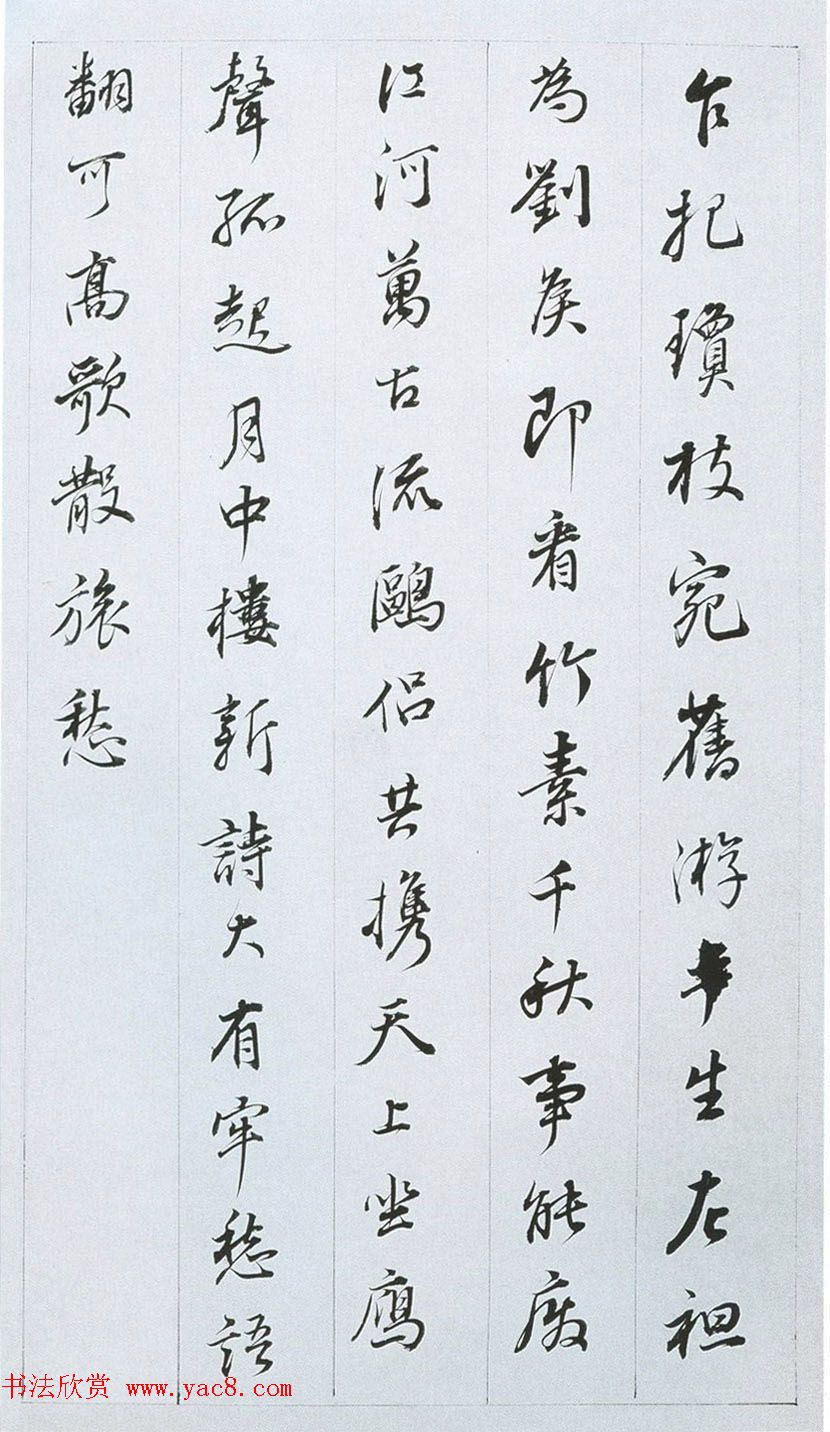 乍把瓊枝宛舊游半生左袒
為劉矦即看竹素千秋事能廢
江河萬古流鷗侶共携天上坐鴈
聲孤起月中樓新詩大有牢愁語
翻可高歌散旅愁
书法欣赏 www.yac8.com